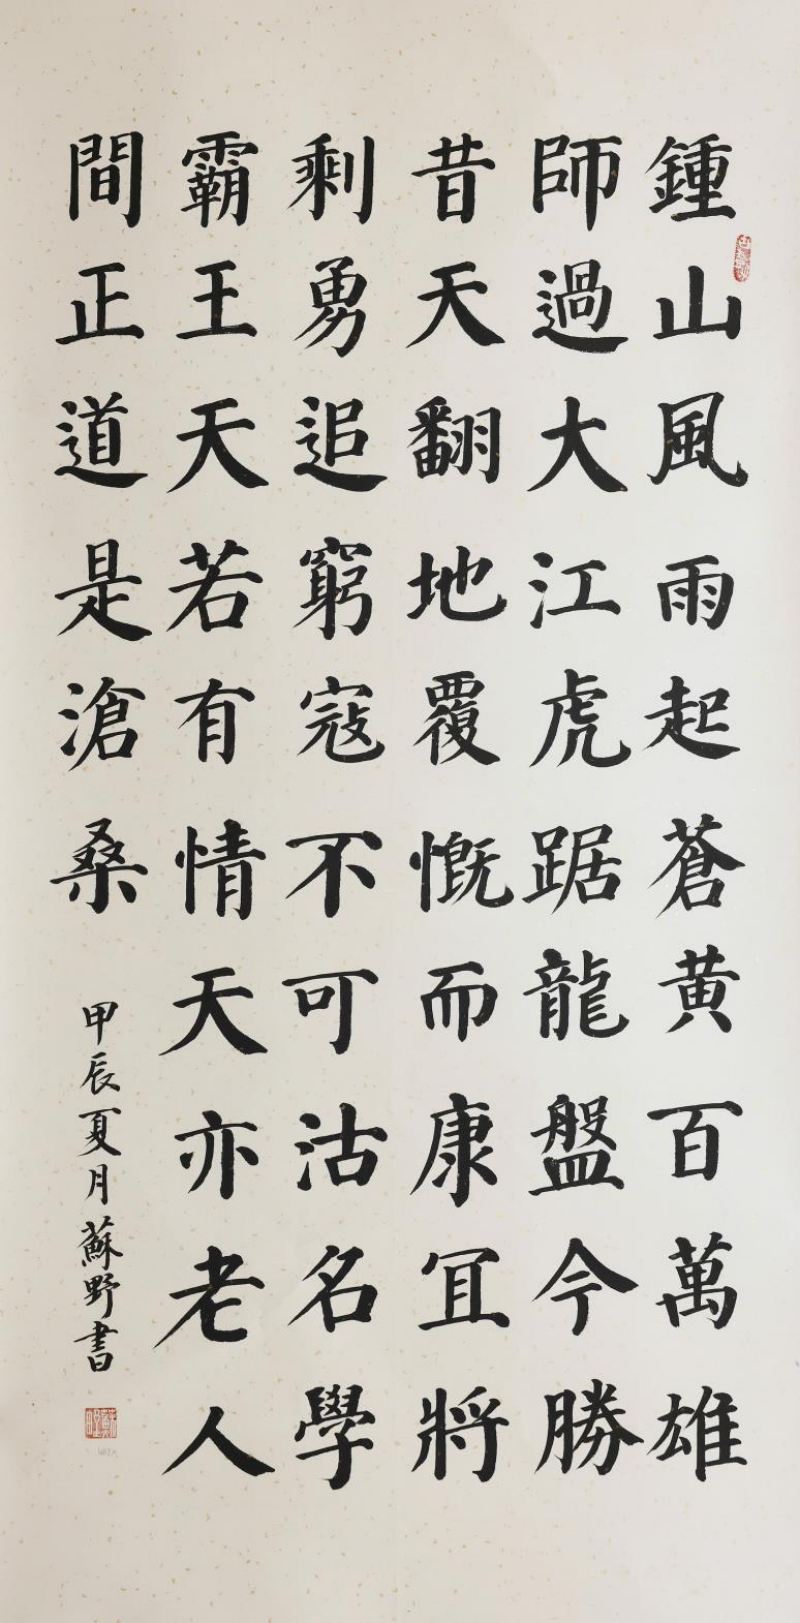 鍾山風雨起蒼黄百萬雄
師過大江虎踞龍盤今勝
昔天翻地覆慨而康宜將
剩勇追窮寇不可沽名學
霸王天若有情天亦老人
間正道是滄桑
甲辰夏月蘇野書